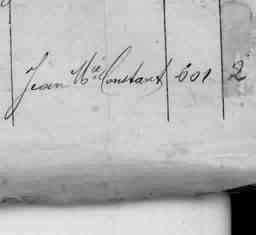 Jean Mie Constant 601 2